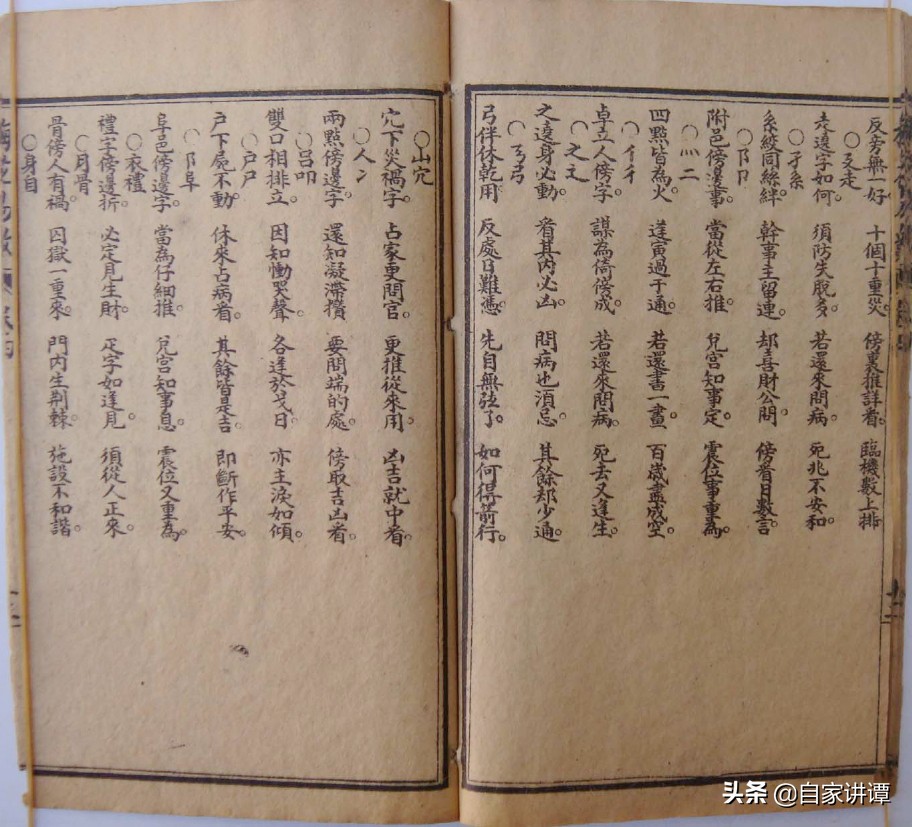 反旁無一好 十個十重災。 傍裏推詳看。 臨機數上排
○叉走
走邊字如何。 須防失脫多。 若還來問病。 死兆不安和
○孑系
系絞同絲絆 幹事主留連。 却喜財公問 傍看目數言
○阝卩
附邑傍邊事。 當從左右推。 兌宮知事定。 震位事重為。
○灬二
四點皆為火 逢寅過于通。 若還書一畫。 百歲盡成空
○亻彳
卓立人傍字。 謀為倚傍成。 若還來問病。 死去又逢生
○之
之遶身必動。 看其內必凶。 問病也須忌。 其餘却少通。
○弓
弓伴休乾用 反處日難憑。 先自無弦了。 如何得箭行。
○山穴
穴下災禍字。 占家更問官。 更推從來用。 凶吉就中看。
○人冫
兩點傍邊字。 還知凝滯攢 要問端的處。 傍取吉凶看。
○呂叩
雙口相排立。 因知慟哭聲。 各逢於戈日 亦主淚如傾。
○戶尸
戶下屍不動。 休來占病看。 其餘皆是吉。 即斷作平安。
○阝阜
阜邑傍邊字。 當為仔細推。 兌宮知事息。 震位又重為。
○衣禮
禮字傍邊折。 必定見生財。 疋字如逢見。 須從人正來。
○月骨
骨傍人有禍。 囚獄一重來。 門內生荆棘。 施設不和諧。
○身自
头条 @自家讲谭